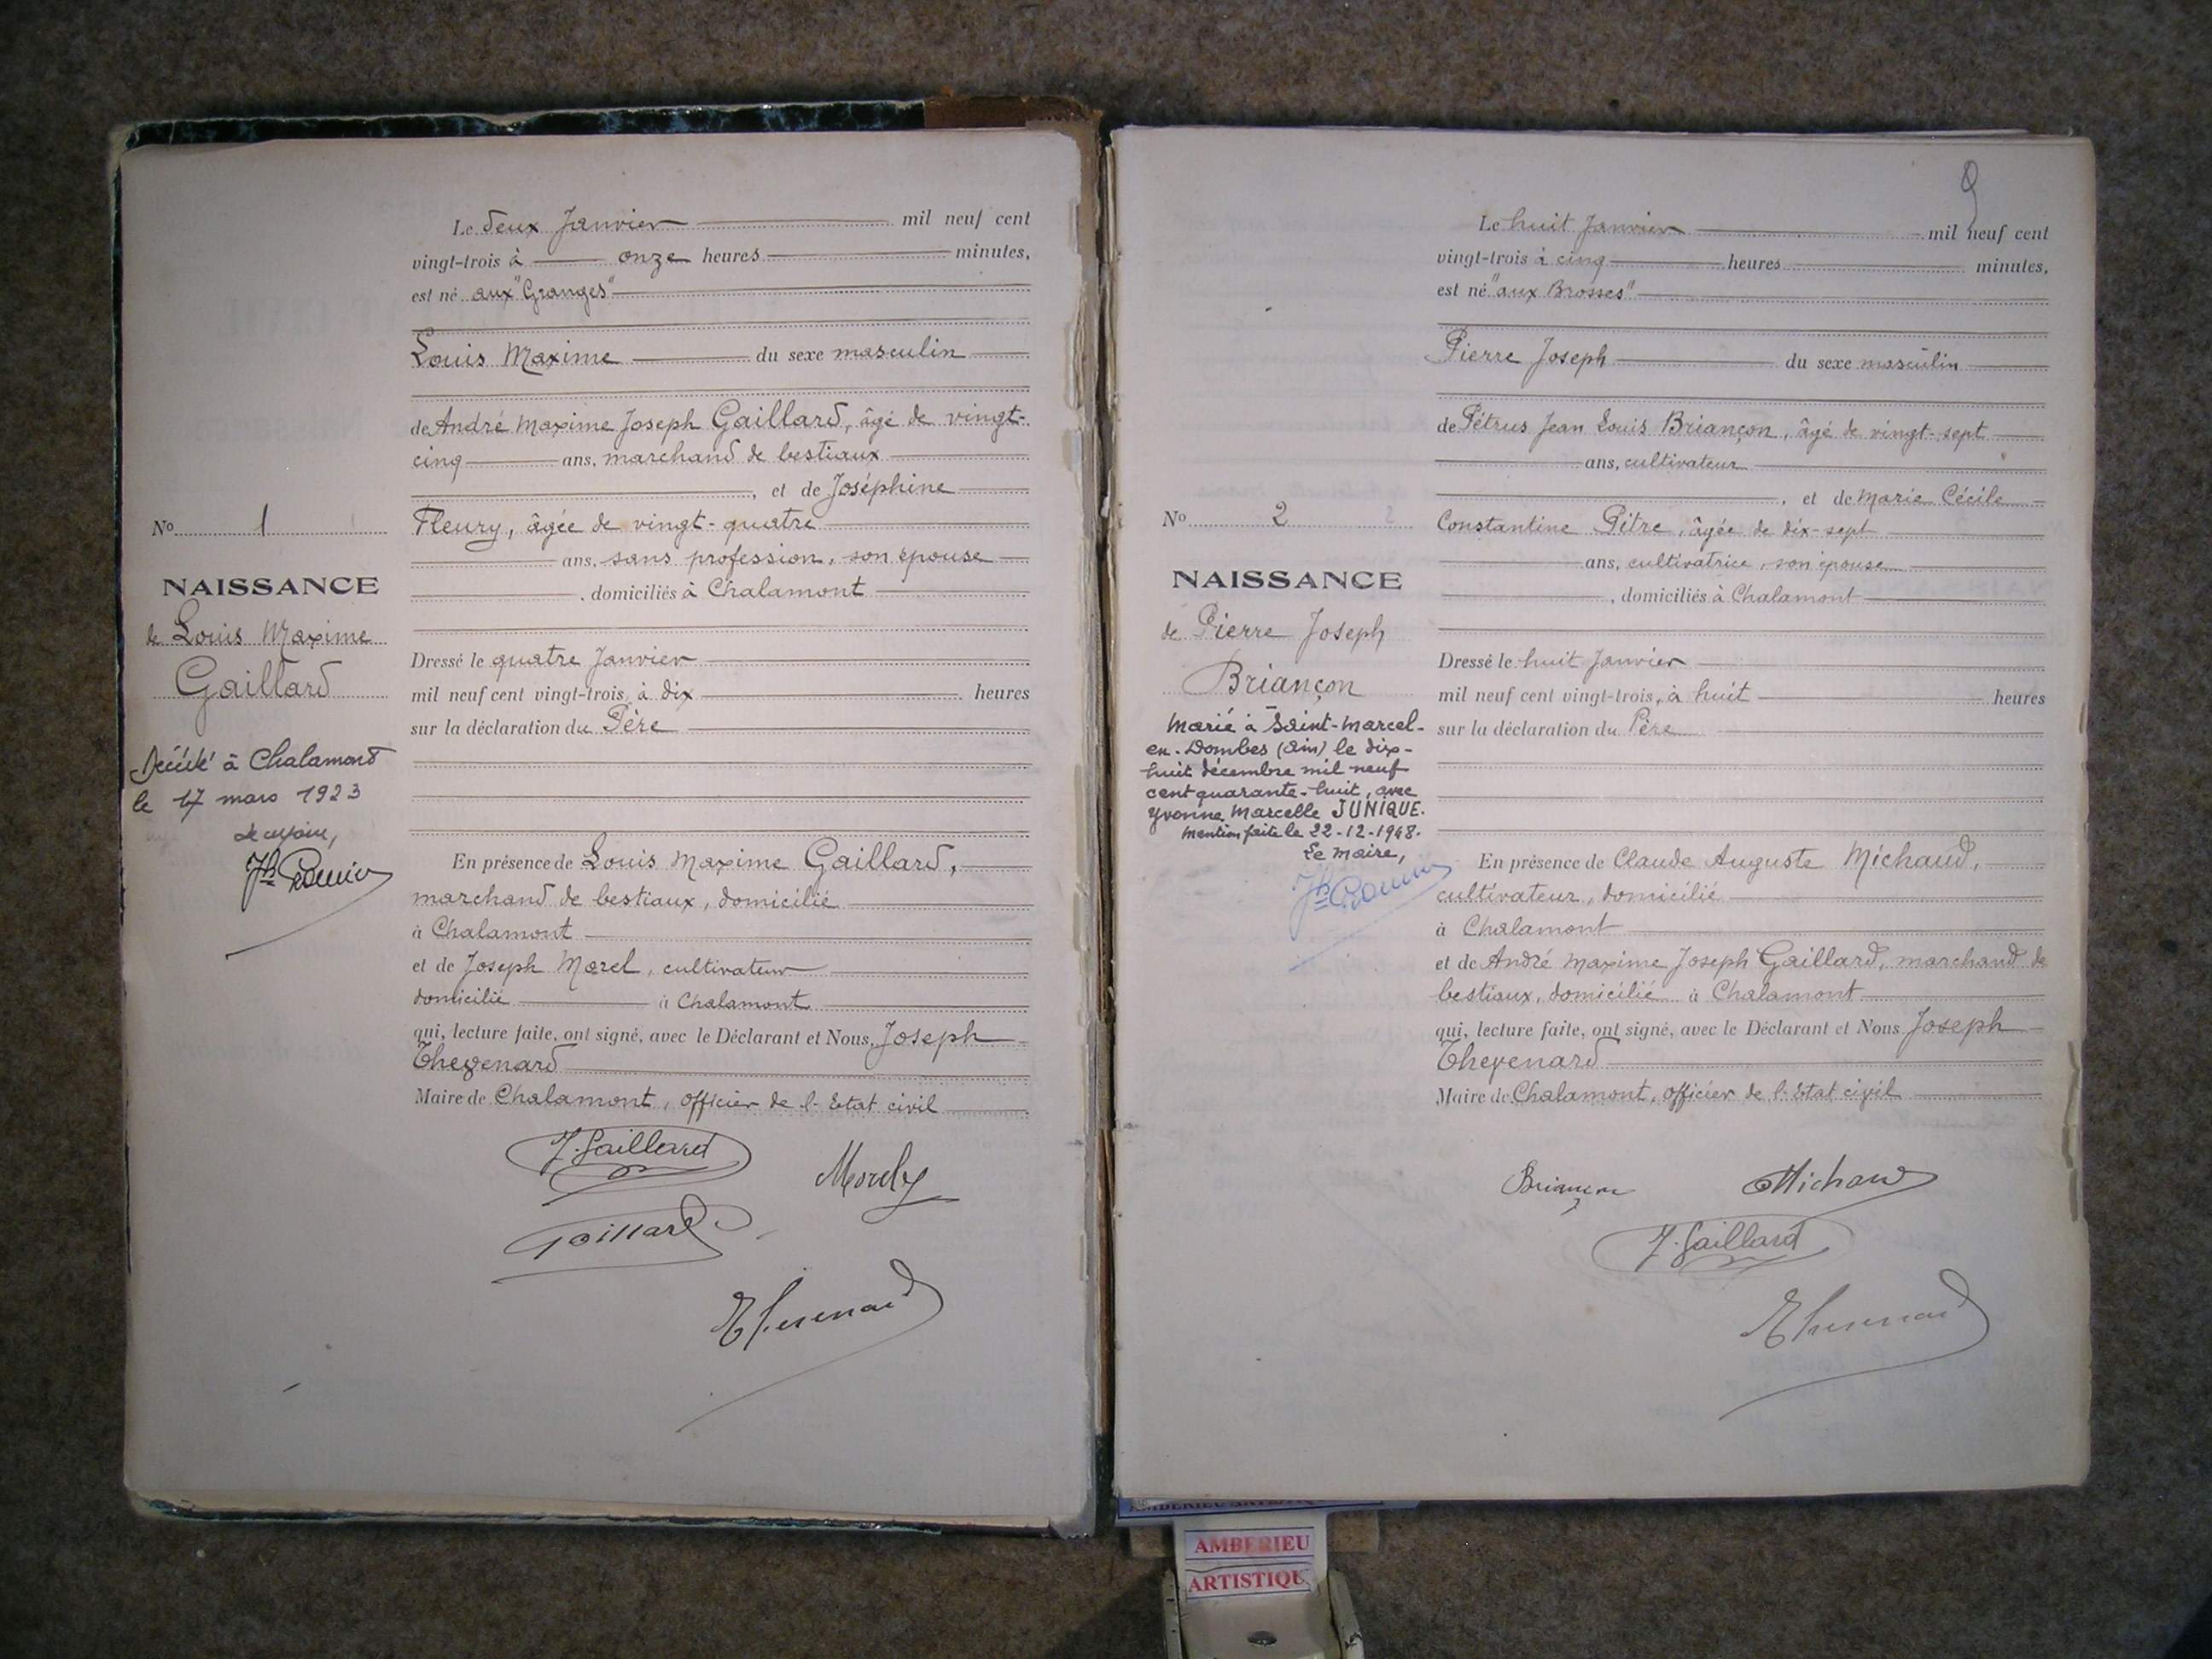 Le deux Janvier mil neuf cent
vingt-trois à onze heures minutes,
est né aux "Granges"
Louis Maxime du sexe masculin
de André Maxime Joseph Gaillard, âgé de vingt-
cinq ans, marchand de bestiaux
, et de Joséphine
Fleury, âgée de vingt-quatre
ans, sans profession, son épouse
, domiciliés à Chalamont
Dressé le quatre Janvier
mil neuf cent vingt-trois, à dix heures
sur la déclaration du Père
En présence de Louis Maxime Gaillard,
marchand de bestiaux, domicilié
à Chalamont
et de Joseph Morel, cultivateur
domicilié à Chalamont
qui, lecture faite, ont signé, avec le Déclarant et Nous, Joseph
Thevenard
Maire de Chalamont, officier de l'Etat civil
J. Gaillard
Morel
Gaillard
Thevenard
No 1
NAISSANCE
de Louis Maxime
Gaillard
Décédé à Chalamont
le 17 mars 1923
9
Le huit Janvier mil neuf cent
vingt-trois à cinq heures minutes,
est né "aux Brosses"
Pierre Joseph du sexe masculin
de Pétrus Jean Louis Briançon, âgé de vingt-sept
ans, cultivateur
, et de Marie Cécile
Constantine Pitre, âgée de dix-sept
ans, cultivatrice, son épouse
, domiciliés à Chalamont
Dressé le huit Janvier
mil neuf cent vingt-trois, à huit heures
sur la déclaration du Père
En présence de Claude Auguste Michaud,
cultivateur, domicilié
à Chalamont
et de André Maxime Joseph Gaillard, marchand de
bestiaux, domicilié à Chalamont
qui, lecture faite, ont signé, avec le Déclarant et Nous Joseph
Thevenard
Maire de Chalamont, officier de l'Etat civil
Briançon
Michaud
J. Gaillard
Thevenard
No 2
NAISSANCE
de Pierre Joseph
Briançon
Marié à Saint-Marcel-
en-Dombes (Ain) le dix-
huit décembre mil neuf
cent quarante-huit, avec
Yvonne Marcelle JUNIQUE.
Mention faite le 22-12-1948.
Le Maire,
AMBERIEU
ARTISTIQU